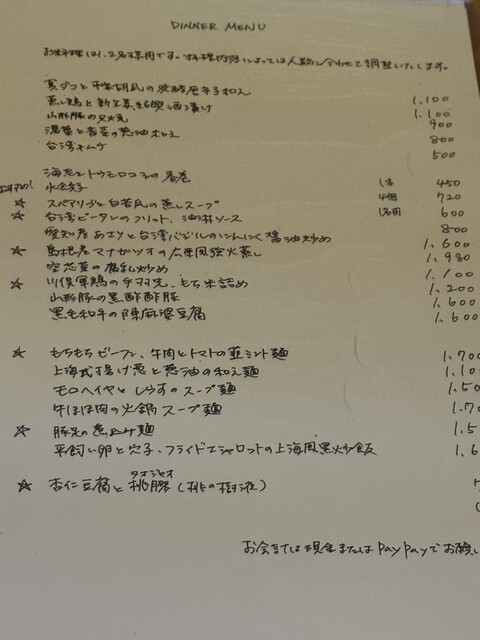 DINNER MENU
お料理は、2名様用です。お料理内容によっては人数に合わせて調整いたします。
夏ダコと平家胡瓜の 唐辛子和え
蒸し鶏と新生姜の 酒漬け 1,100
山形豚の叉焼 1,100
湯葉と香菜の葱油和え 900
台湾キムチ 800
500
海老とトウモロコシの春巻 1本 450
おすすめ! 水餃子 4個 720
☆ スペアリブと白苦瓜の蒸しスープ 1名用 600
☆ 台湾ピータンのフリット、油淋ソース 800
愛知産あさりと台湾バジルのにんにく醤油炒め 1,600
☆ 島根産マナガツオの広東風強火蒸し 1,980
空芯菜の腐乳炒め 1,100
☆ 川俣軍鶏の手羽先、もち米詰め 1,200
山形豚の黒酢酢豚 1,600
黒毛和牛の陳麻婆豆腐 1,600
☆ もちもちビーフン、牛肉とトマトの韮ミント麺 1,700
上海式揚げ葱と葱油の和え麺 1,10
モロヘイヤとしらすのスープ麺 1,50
牛ほほ肉の火鍋スープ麺 1,70
☆ 豚足の煮込み麺 1,5
平飼い卵と穴子、フライドエシャロットの上海風黒炒飯 1,6
タオジャオ
☆ 杏仁豆腐と桃膠(桃の樹液)
お会計は現金またはPayPayでお願いし